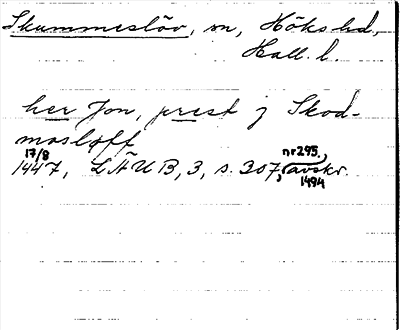 Skummeslöv, sn, Höks hd,
Hall. l.
her Jon, prest j Skod-
mosløff
17/8
1447, LÄUB, 3, s. 307, nr 295, avskr.
1494